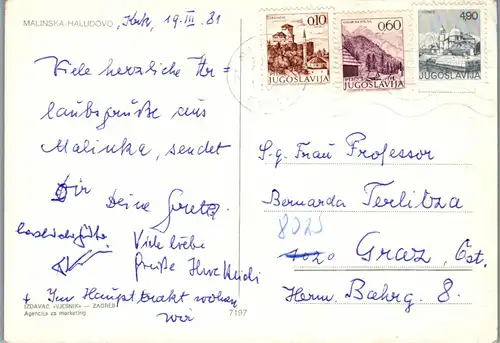 MALINSKA-HALUDOVO, Krk, 19. III. 81
Viele herzliche Ur=
laubsgrüße aus
Malinka, sendet
Dir
Deine Greta
Viele liebe
Grüße
+ Im Haupttrakt wohnen
wir
IZDAVAČ »VJESNIK« — ZAGREB
Agencija za marketing
7197
0,10
JUGOSLAVIJA
0,60
JUGOSLAVIJA
4,90
JUGOSLAVIJA
S.g. Frau Professor
Bernarda Terlitza
8020
Graz, Öst.
Herm. Bahrg. 8.